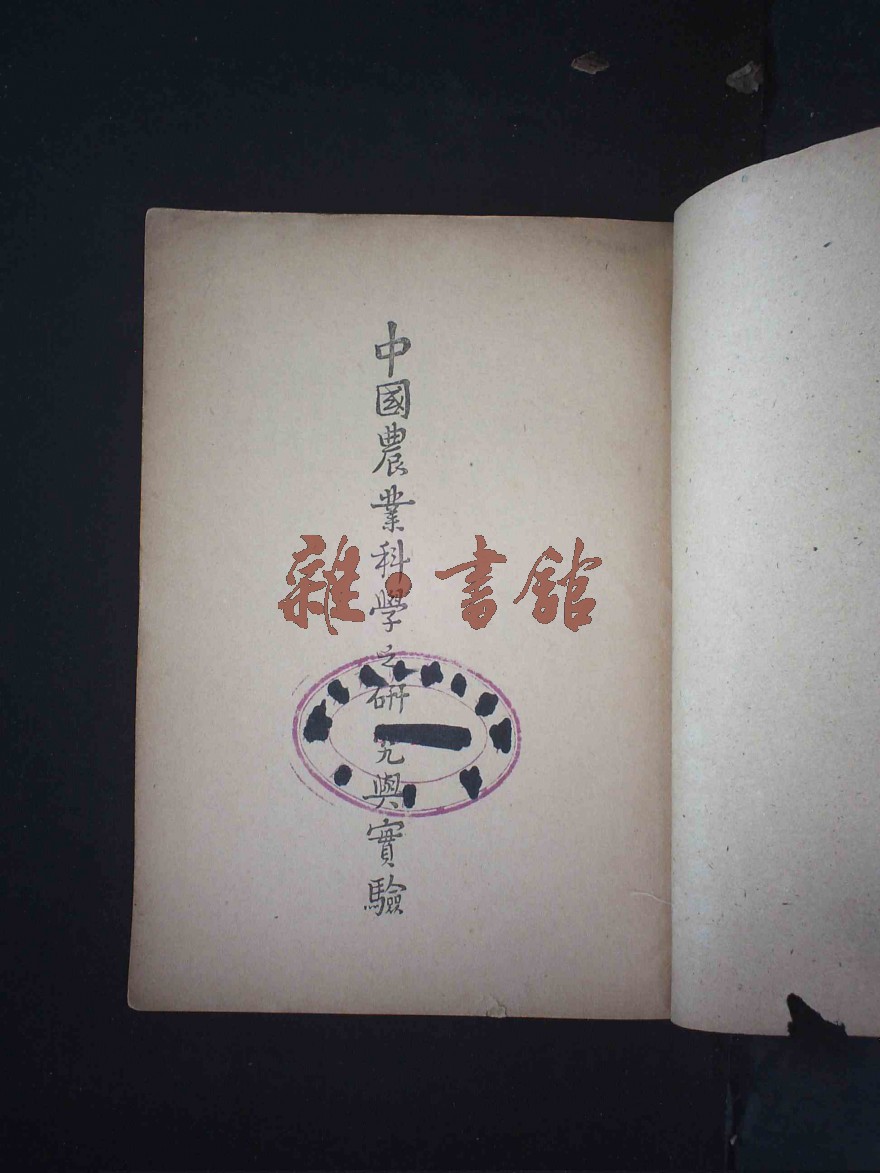 中國農業科學之研究與實驗
雜·書館